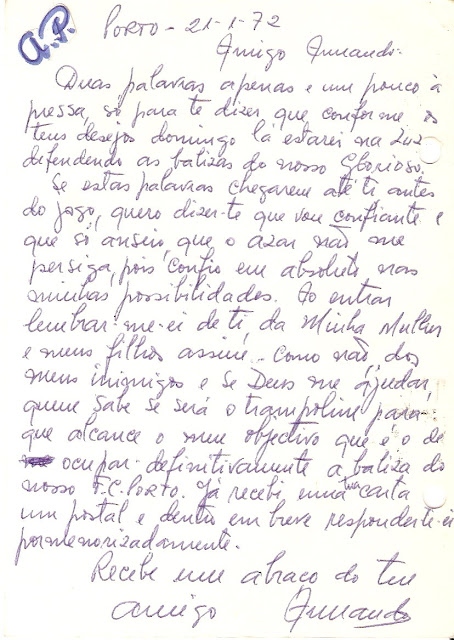 A.P.
PORTO - 21-1-72
Amigo Armando.
Duas palavras apenas e um pouco à
pressa, só para te dizer, que conforme os
teus desejos domingo lá estarei na Luz
defendendo as balizas do nosso Glorioso.
Se estas palavras chegarem até ti antes
do jogo, quero dizer-te que vou confiante e
que só anseio, que o azar não me
persiga, pois confio em absoluto nas
minhas possibilidades. Ao entrar
lembrar-me-ei de ti, da Minha Mulher
e meus filhos assim como não, dos
meus inimigos e se Deus me ajudar,
quem sabe se será o trampolim para
que alcance o meu objectivo que é o de
ocupar definitivamente a baliza do
nosso F.C. PORTO. Já recebi uma tua carta
um postal e dentro em breve responderte-ei
pormenorizadamente.
Recebe um abraço do teu
amigo Armando